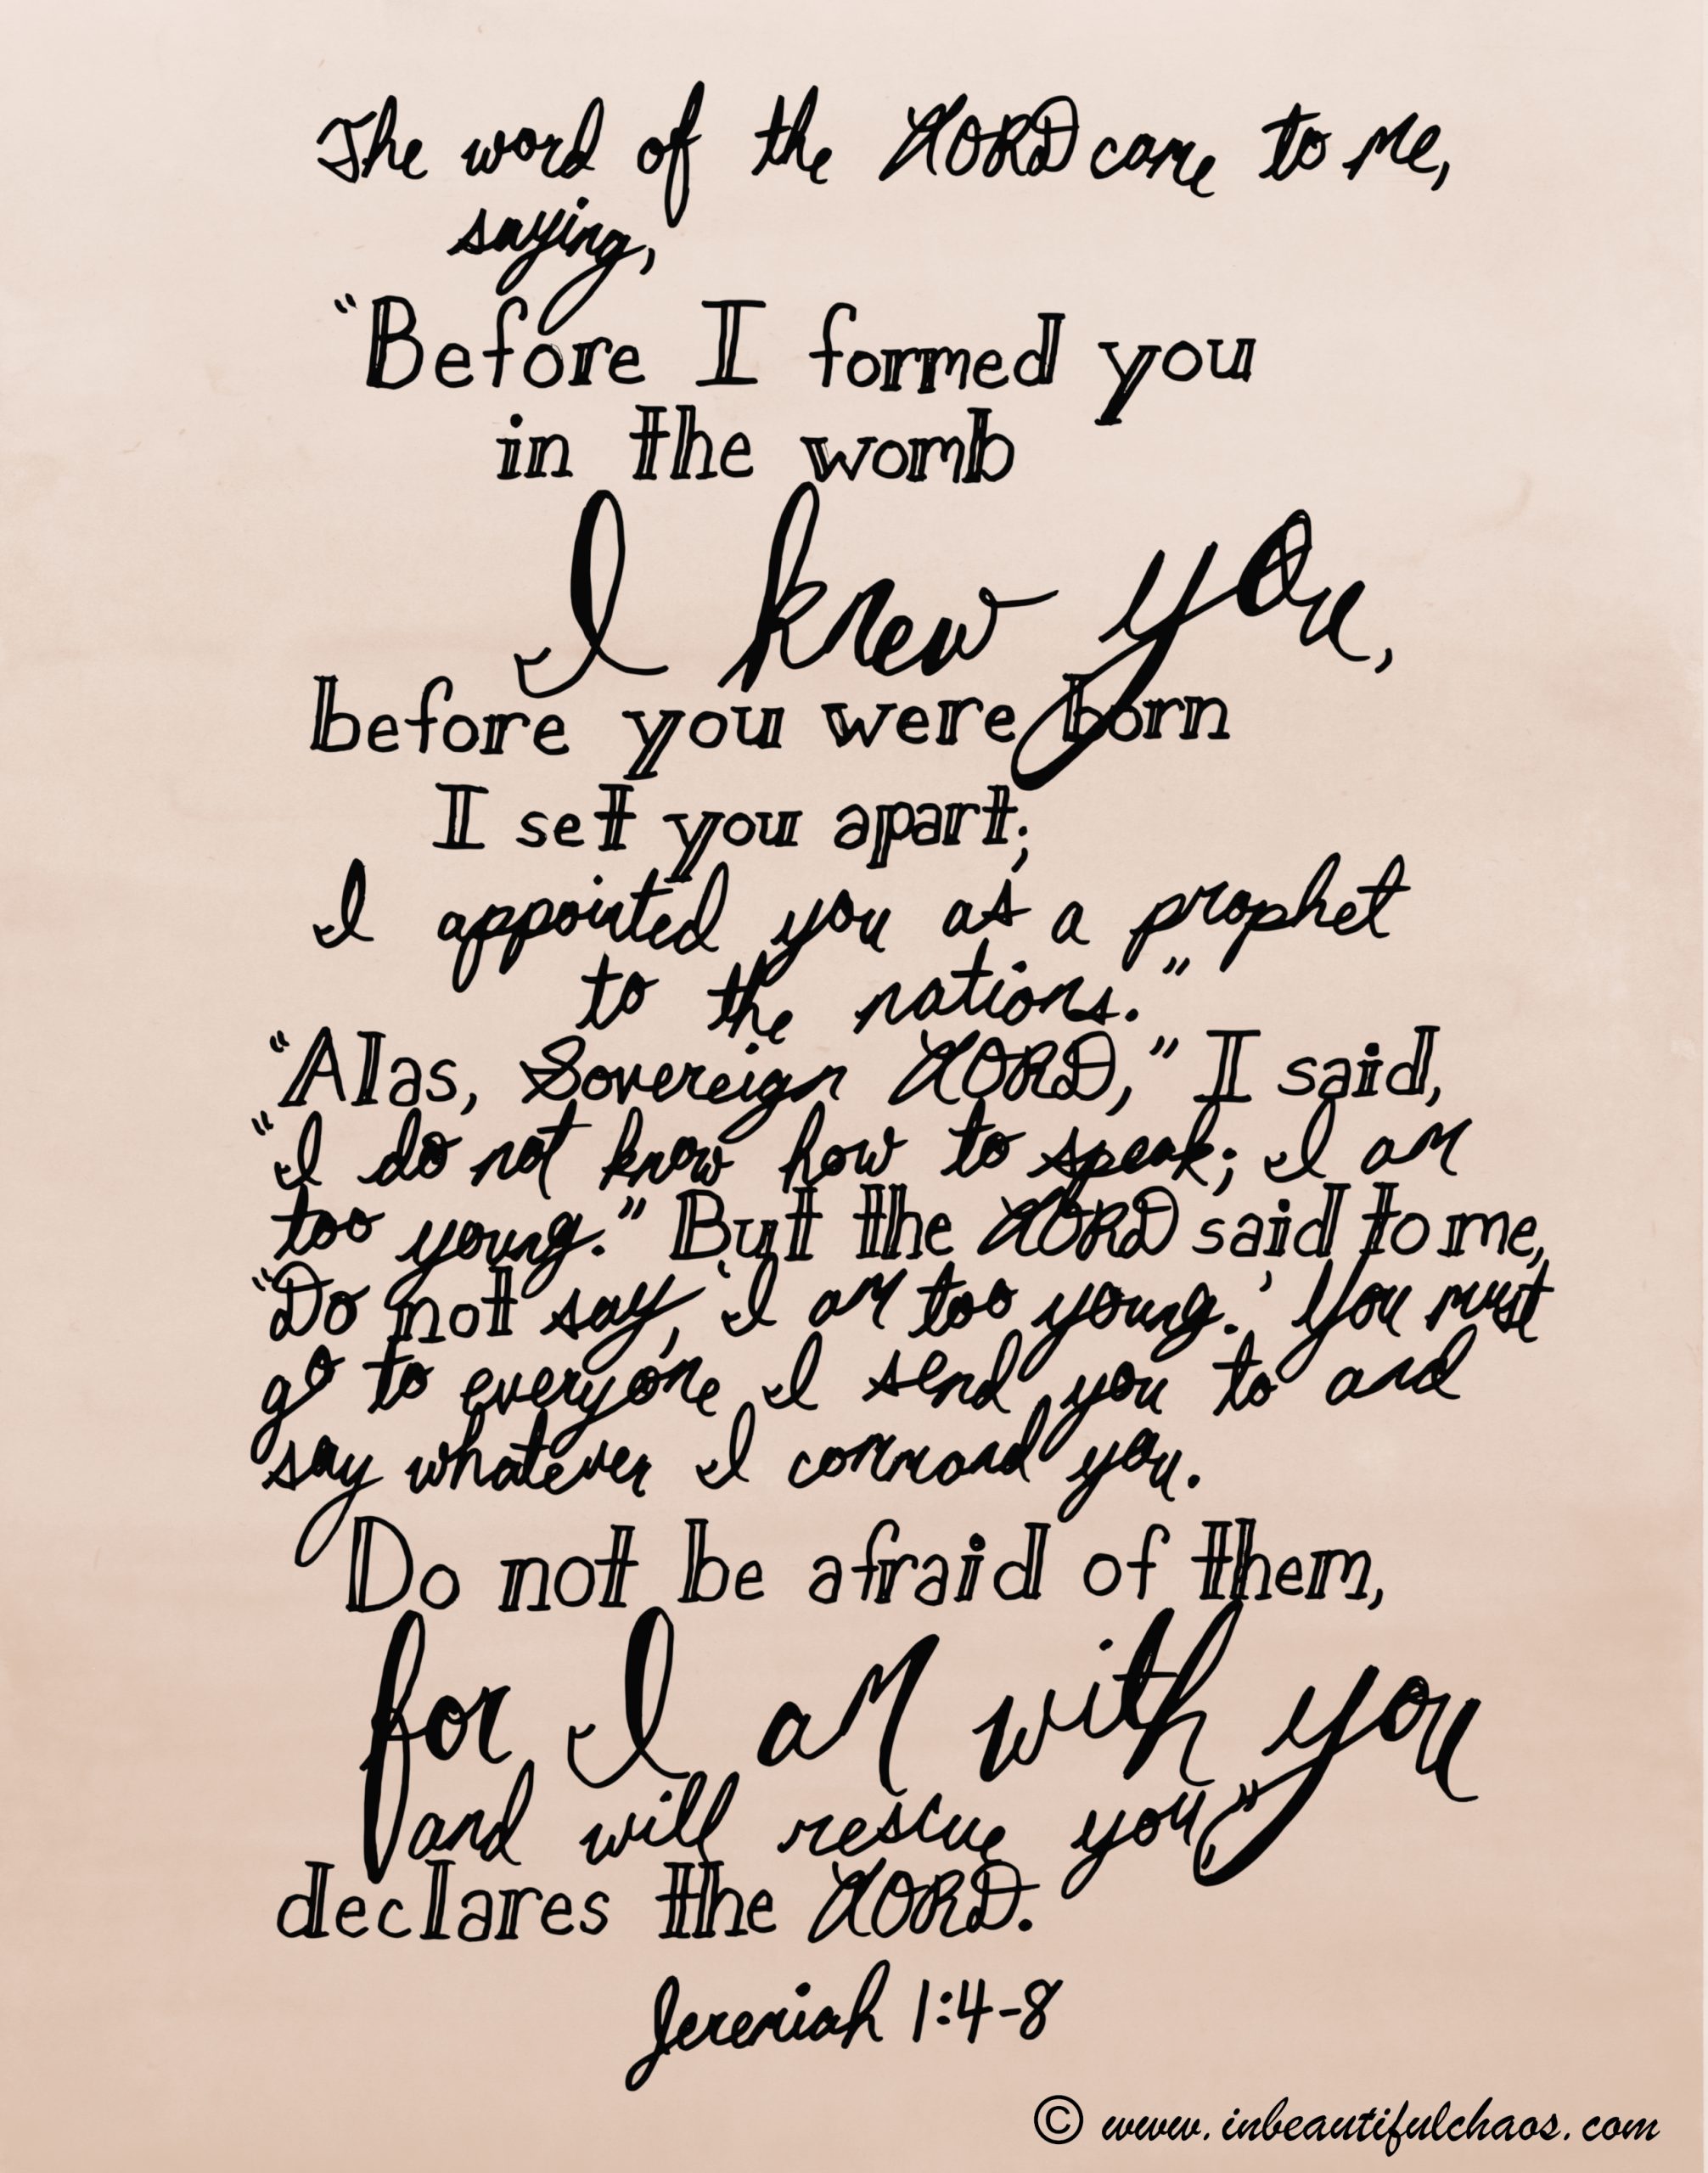 The word of the LORD came to me,
saying,
“Before I formed you
in the womb
I knew you,
before you were born
I set you apart;
I appointed you as a prophet
to the nations.”
“Alas, Sovereign LORD,” I said,
“I do not know how to speak; I am
too young.” But the LORD said to me,
“Do not say, ‘I am too young.’ You must
go to everyone I send you to and
say whatever I command you.
Do not be afraid of them,
for I am with you
and will rescue you,”
declares the LORD.
Jeremiah 1:4-8
© www.inbeautifulchaos.com